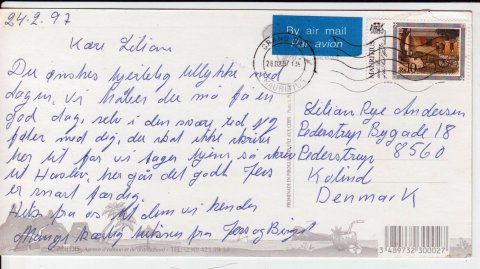 24-2.97
Kære Lilian
Du ønskes hjertelig tillykke med
dagen, vi håber du må få en
god dag, selv i den svære tid, jeg
føler med dig, du skal ikke skrive
her til for vi tager hjem så skriv
til Haslev, her går det godt Jens
er snart færdig.
Hils fra os til dem vi kender
Mange kærlig hilsner fra Jens og Birgit
By air mail
par avion
MAURITIUS
Rs 10
Lilian Rye Andersen
Pederstrup Bygade 18
Pederstrup 8560
Kolind
Denmark
3 489732 300027